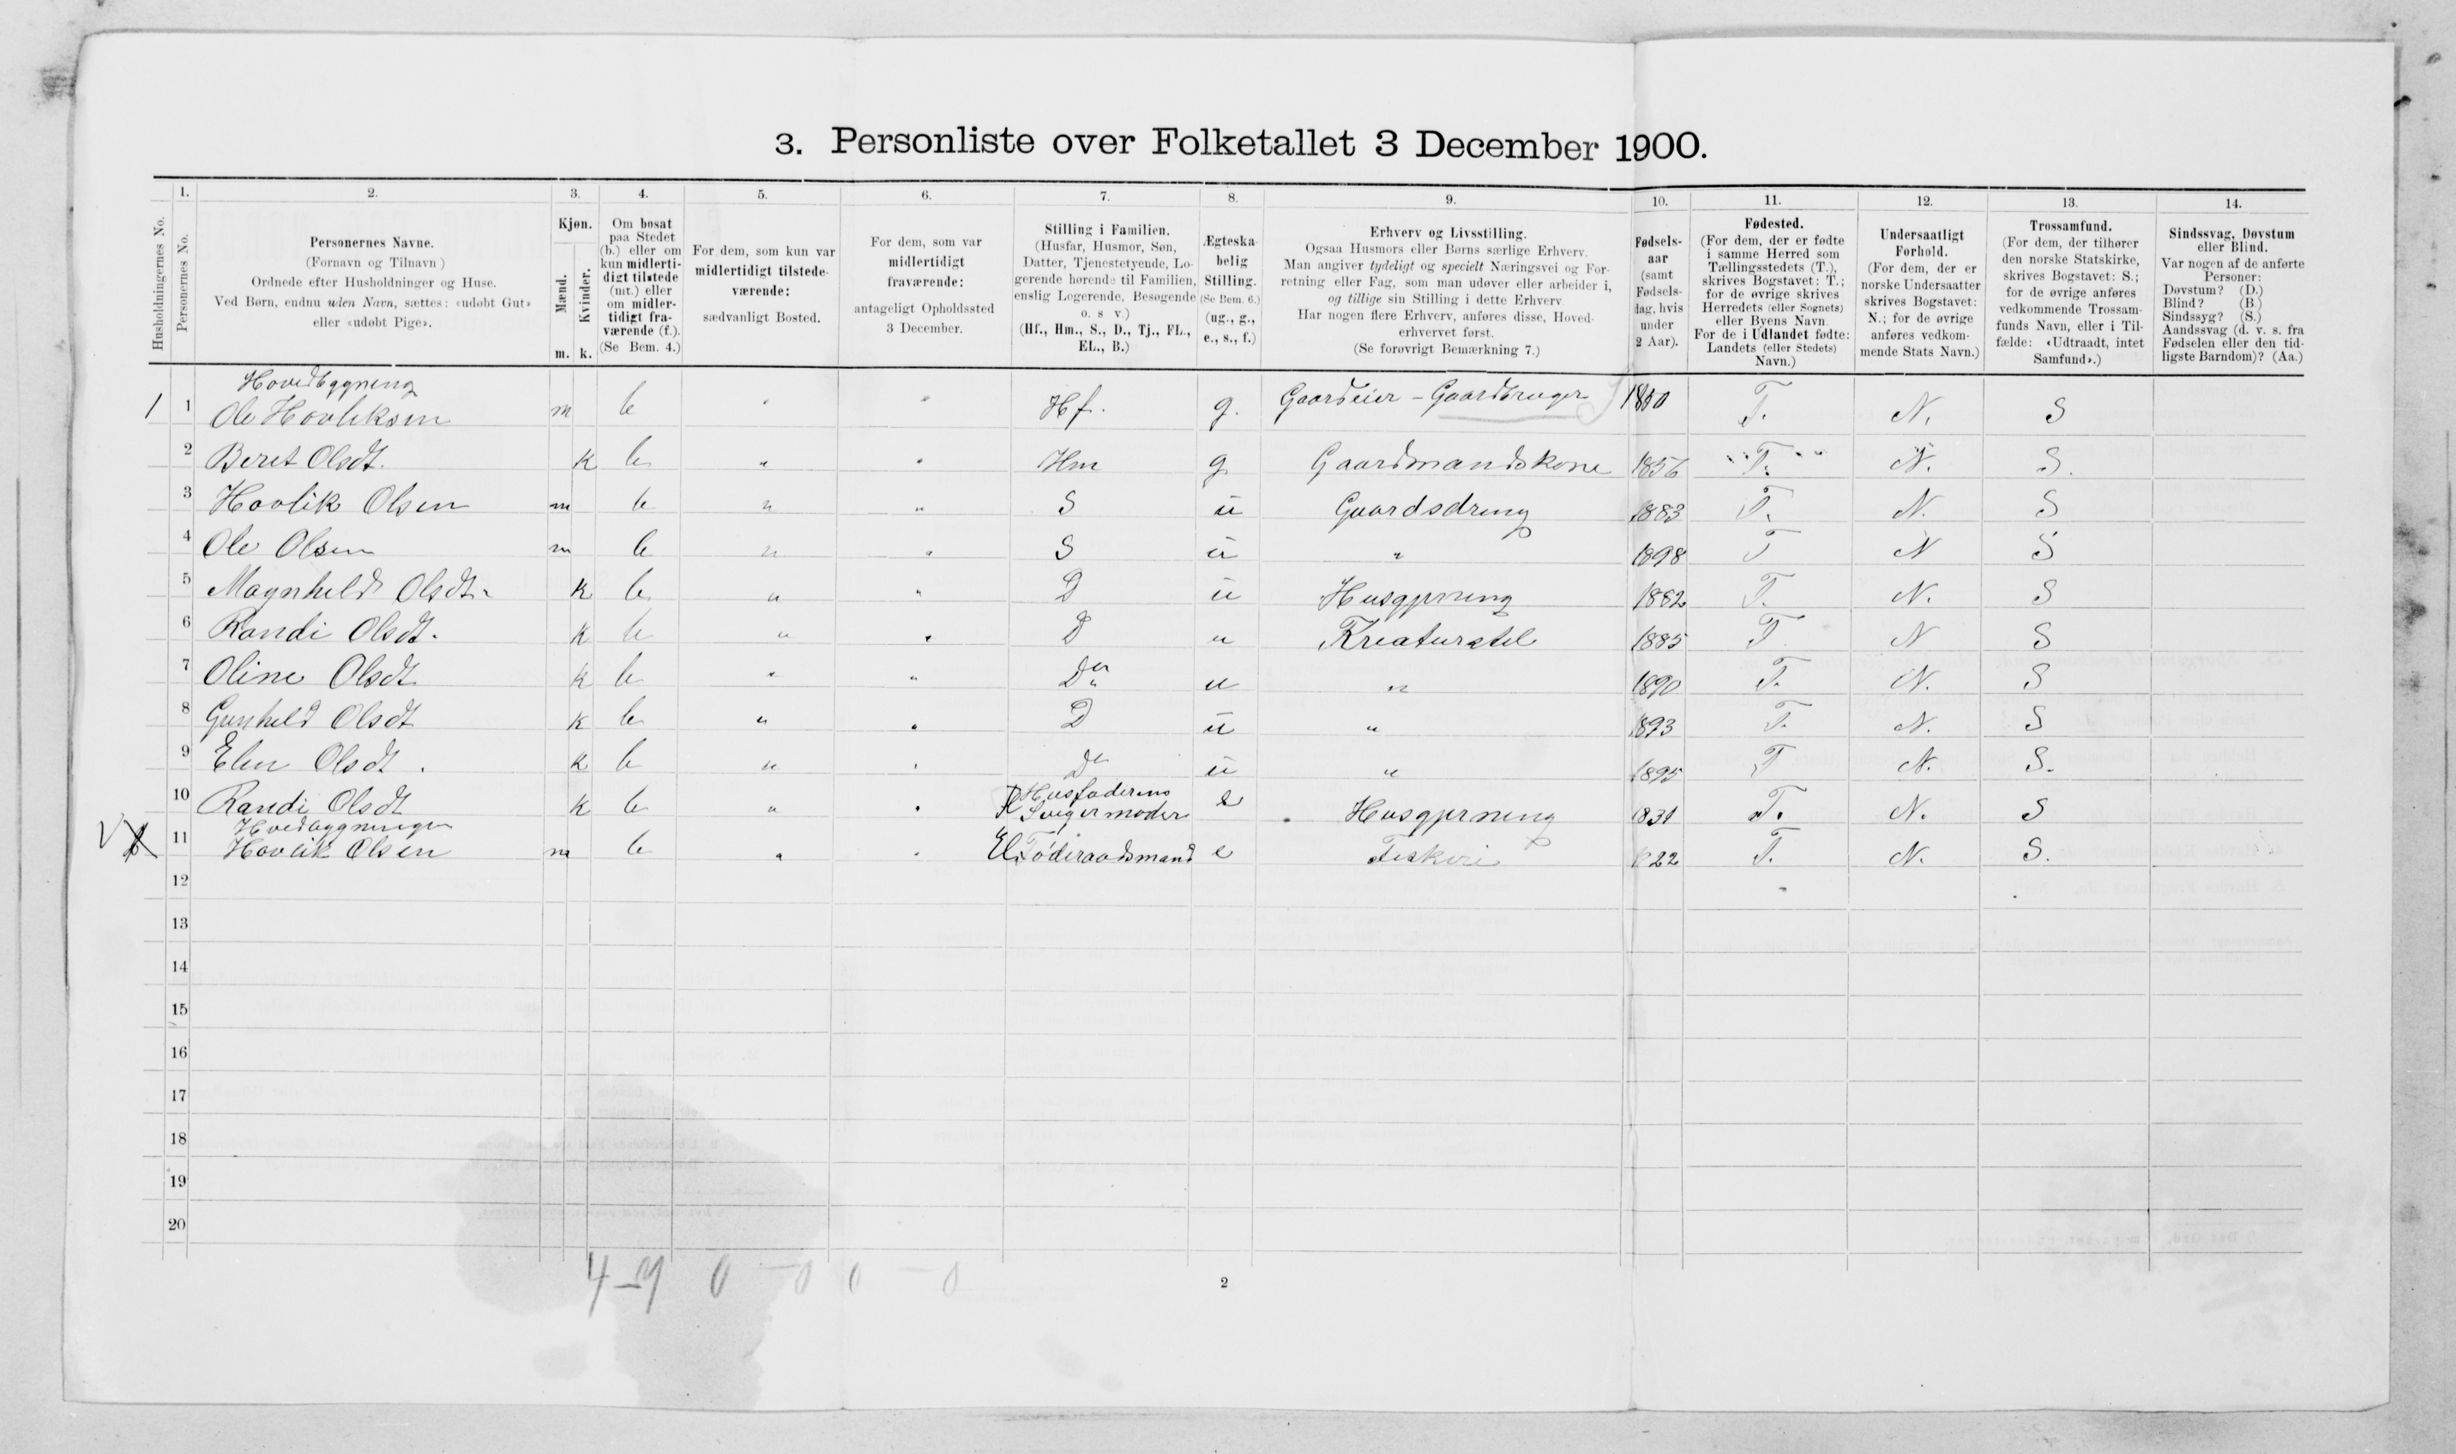 3. Personliste over Folketallet 3 December 1900.
1. 2. 3. 4. 5. 6. 7. 8. 9. 10. 11. 12. 13. 14.
Husholdningernes No.
Personernes No.
Personernes Navne.
(Fornavn og Tilnavn)
Ordnede efter Husholdninger og Huse.
Ved Børn, endnu uden Navn, sættes: «udøbt Gut»
eller «udøbt Pige».
Kjøn.
Mænd.
Kvinder.
m. k.
Om bosat
paa Stedet
(b.) eller om
kun midlerti-
digt tilstede
(mt.) eller
om midler-
tidigt fra-
værende (f.).
(Se Bem. 4.)
For dem, som kun var
midlertidigt tilstede-
værende:
sædvanligt Bosted.
For dem, som var
midlertidigt
fraværende:
antageligt Opholdssted
3 December.
Stilling i Familien.
(Husfar, Husmor, Søn,
Datter, Tjenestetyende, Lo-
gerende hørende til Familien,
enslig Logerende, Besøgende
o. s v.)
(Hf., Hm., S., D., Tj., FL.,
EL., B.)
Ægteska-
belig
Stilling.
(Se Bem. 6.)
(ug., g.,
e., s., f.)
Erhverv og Livsstilling.
Ogsaa Husmors eller Børns særlige Erhverv.
Man angiver tydeligt og specielt Næringsvei og For-
retning eller Fag, som man udøver eller arbeider i,
og tillige sin Stilling i dette Erhverv.
Har nogen flere Erhverv, anføres disse, Hoved-
erhvervet først.
(Se forøvrigt Bemærkning 7.)
Fødsels-
aar
(samt
Fødsels-
dag, hvis
under
2 Aar).
Fødested.
(For dem, der er fødte
i samme Herred som
Tællingsstedets (T.),
skrives Bogstavet: T.;
for de øvrige skrives
Herredets (eller Sognets)
eller Byens Navn.
For de i Udlandet fødte:
Landets (eller Stedets)
Navn.)
Undersaatligt
Forhold.
(For dem, der er
norske Undersaatter
skrives Bogstavet:
N.; for de øvrige
anføres vedkom-
mende Stats Navn.)
Trossamfund.
(For dem, der tilhører
den norske Statskirke,
skrives Bogstavet: S.;
for de øvrige anføres
vedkommende Trossam-
funds Navn, eller i Til-
fælde: «Udtraadt, intet
Samfund».)
Sindssvag, Døvstum
eller Blind.
Var nogen af de anførte
Personer:
Døvstum? (D.)
Blind? (B.)
Sindssyg? (S.)
Aandssvag (d. v. s. fra
Fødselen eller den tid-
ligste Barndom)? (Aa.)
Hovedbygning
1 1 Ole Hovliksen m b " " Hf. g. Gaardeier - Gaardbruger 1850 T. N. S
2 Beret Olsdt. k b " " Hm g Gaardmandskone 1856 " T. " N. S.
3 Hovlik Olsen m b " " S u Gaardsdreng 1883 T. N. S
4 Ole Olsen m b " " S u " 1898 T N S
5 Magnhild Olsdt. k b " " D u Husgjerning 1882 T. N. S
6 Randi Olsdt. k b " " D u Kreaturstel 1885 T N S
7 Oline Olsdt k b " " D u " 1890 T. N. S
8 Gunhild Olsdt k b " " D u " 1893 T. N. S
9 Elen Olsdt. k b " " D u " 1895 T N. S.
10 Randi Olsdt k b " " Husfaderens Svigermoder e Husgjerning 1831 T. N. S
Hovedbygningen
11 Hovlik Olsen m b " " El. Föderaadsmand e Fiskeri 1822 T. N. S.
12
13
14
15
16
17
18
19
20
4-7 0 - 0 0 - 0
2